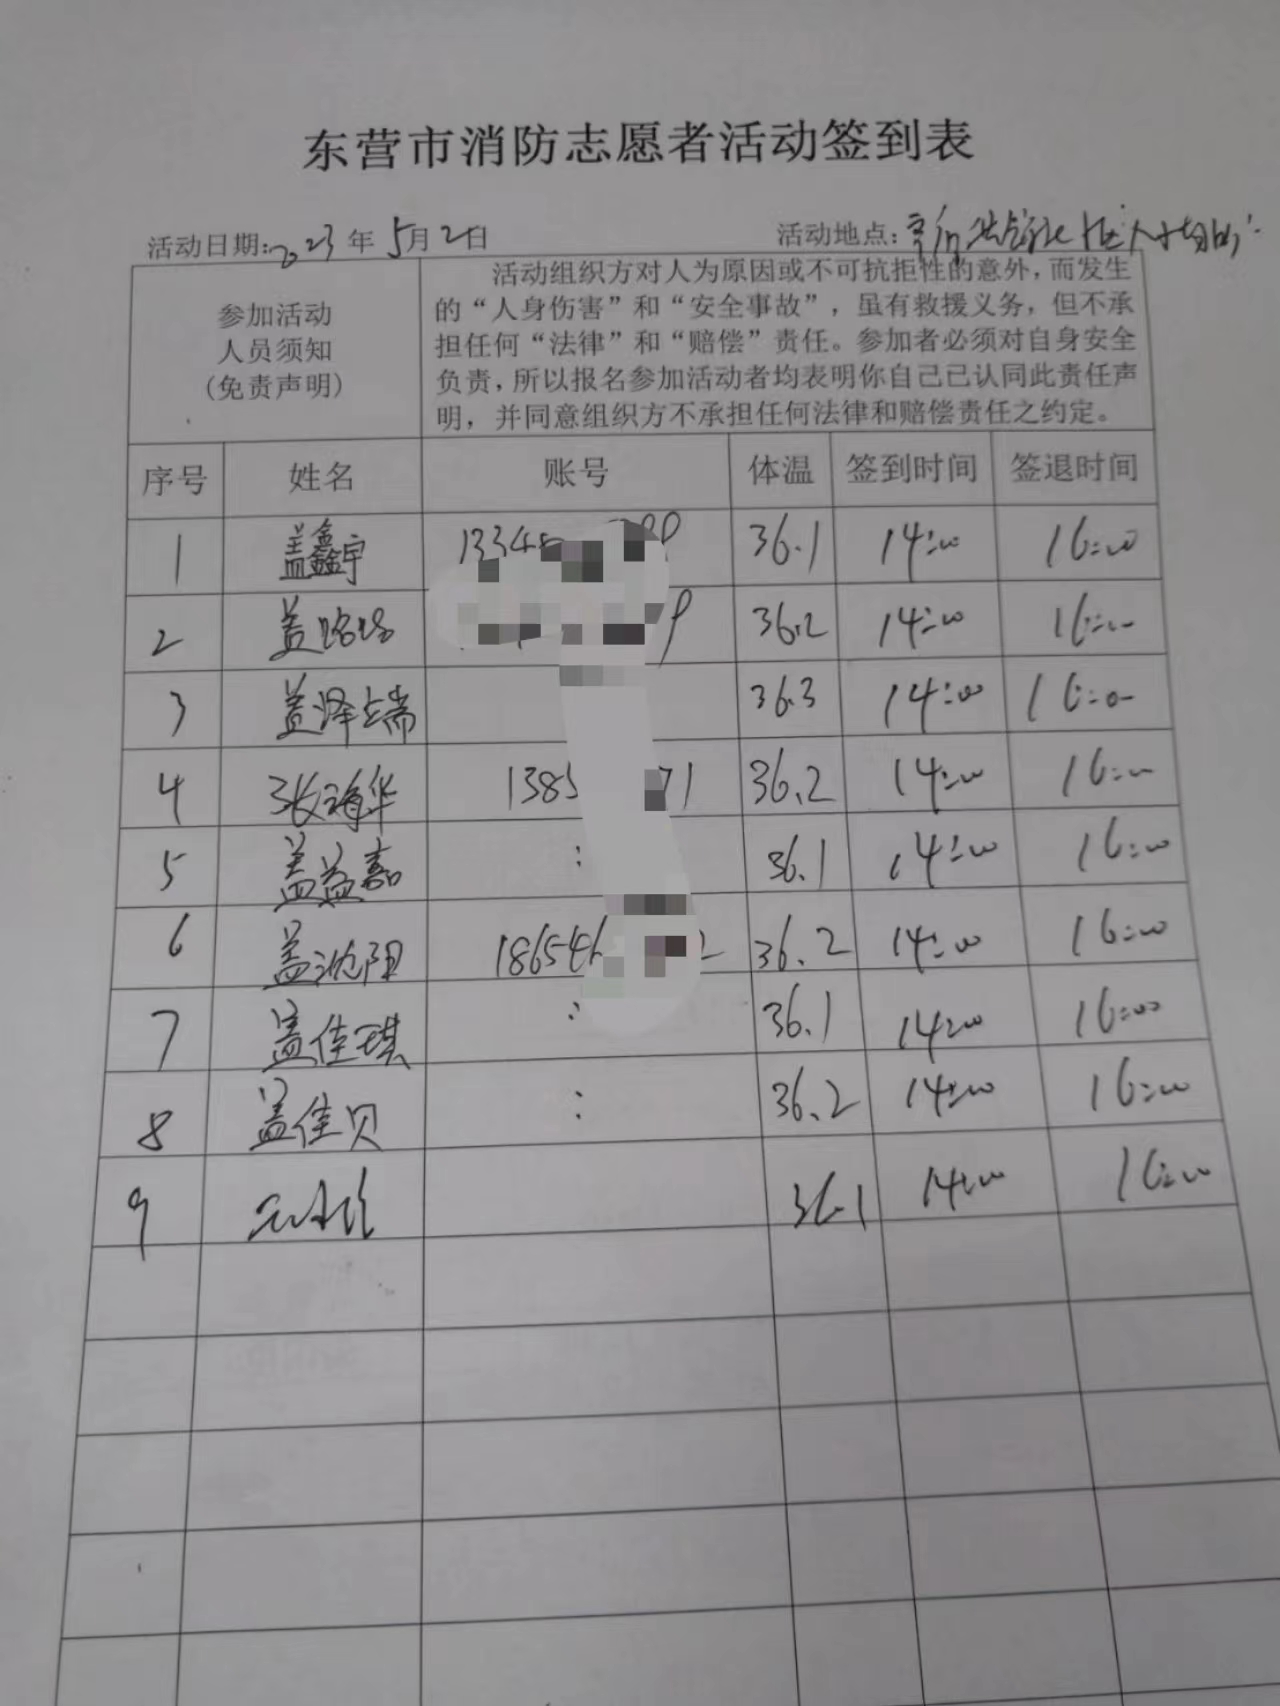 东营市消防志愿者活动签到表
活动日期:2023年5月2日 活动地点:
参加活动
人员须知
(免责声明)
活动组织方对人为原因或不可抗拒性的意外,而发生
的“人身伤害”和“安全事故”,虽有救援义务,但不承
担任何“法律”和“赔偿”责任。参加者必须对自身安全
负责,所以报名参加活动者均表明你自己已认同此责任声
明,并同意组织方不承担任何法律和赔偿责任之约定。
序号 姓名 账号 体温 签到时间 签退时间
1 盖鑫宇 1334 36.1 14:00 16:00
2 盖 36.2 14:00 16:00
3 盖泽端 36.3 14:00 16:00
4 张海华 1385 71 36.2 14:00 16:00
5 盖益嘉 : 36.1 14:00 16:00
6 盖沈阳 18654 2 36.2 14:00 16:00
7 盖佳琪 : 36.1 14:00 16:00
8 盖佳贝 : 36.2 14:00 16:00
9 36.1 14:00 16:00